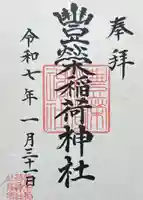 奉拝
豊栄稲荷神社
令和七年一月三十一日